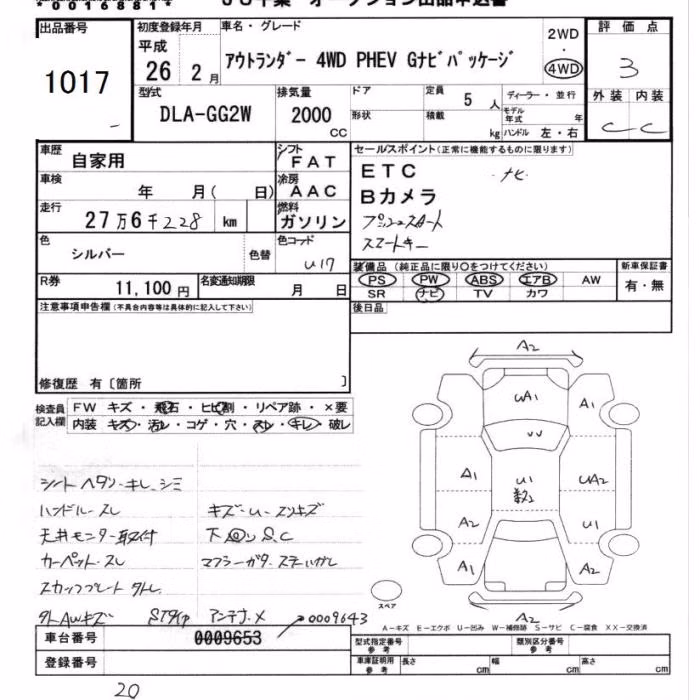 *00168811*
JU千葉 オークション出品申込書
出品番号
1017
初度登録年月
平成
26 2 月
車名・グレード
アウトランダー 4WD PHEV Gナビパッケージ
2WD
・
4WD
評価点
3
外装 内装
C C
型式
DLA-GG2W
排気量
2000
CC
ドア
形状
定員 5 人
積載 kg
ディーラー・並行
モデル年式 年
ハンドル 左・右
車歴
自家用
シフト
FAT
車検
年 月( 日)
冷房
AAC
走行
27万6千228 km
燃料
ガソリン
色
シルバー
色替
色コード
U17
R券
11,100 円
名変通知期限
月 日
セールスポイント(正常に機能するものに限ります)
ETC ・ナビ
Bカメラ
プッシュスタート
スマートキー
装備品(純正品に限り○をつけてください)
PS PW ABS エアB AW
SR ナビ TV カワ
新車保証書
有・無
後日品
注意事項申告欄(不具合内容等は具体的に記入して下さい)
修復歴 有〔箇所 〕
検査員記入欄
FW キズ・飛石・ヒビ割・リペア跡・×要
内装 キズ・汚レ・コゲ・穴・スレ・キレ・破レ
シート ヘタリ・キレ シミ
ハンドル・スレ
キズ・U・スリキズ
天井モニター取付
下 S.C
カーペット・スレ
スカッフプレート
AWキズ
アンテナ・メ
0009643
A2
UA1
A1
VV
A1
U1
UA2
A2
U1
A1
A2
A2
スペア
A-キズ E-エクボ U-凹み W-補修跡 S-サビ C-腐食 XX-交換済
車台番号
0009653
登録番号
型式指定番号 参考
類別区分番号 参考
車庫証明用 参考
長さ cm
幅 cm
高さ cm
20